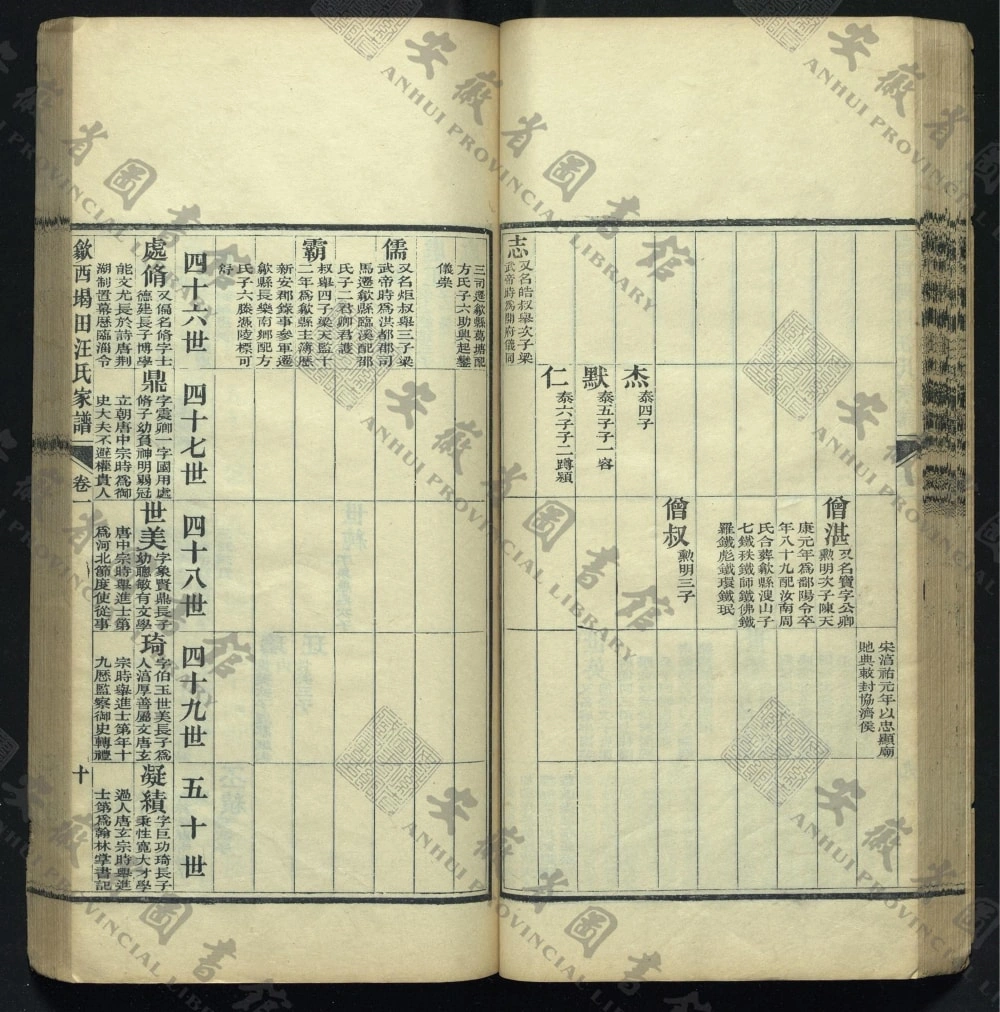 宋淳祐元年以忠顯廟
貤典敕封協濟侯
僧湛
又名寶字公卿
勲明次子陳天
康元年為鄱陽令卒
年八十九配汝南周
氏合葬歙縣溲山子
七鐵秩鐵師鐵佛鐵
羅鐵彪鐵環鐵珉
僧叔
勲明三子
杰
泰四子
默
泰五子子一容
仁
泰六子子二蹲潁
志
又名皓叔舉次子梁
武帝時為開府儀同
三司遷歙縣葛塘配
方氏子六助興起鑒
儀崇
儒
又名炬叔舉三子梁
武帝時為洪都郡司
馬遷歙縣臨溪配邵
氏子二君卿君護
霸
叔舉四子梁天監十
二年為歙縣主簿歷
新安郡錄事參軍遷
歙縣長樂南鄉配方
氏子六滕憑陵標可
紆
四十六世
四十七世
四十八世
四十九世
五十世
處脩
又偁名脩字士
德建長子博學
能文尤長於詩唐荆
湖制置幕歷臨淄令
鼎
字震卿一字國用處
脩子幼負神明弱冠
立朝唐中宗時為御
史大夫不避權貴人
世美
字象賢鼎長子
幼聰敏有文學
唐中宗時舉進士第
為河北節度使從事
琦
字伯玉世美長子為
人淳厚善屬文唐玄
宗時舉進士第年十
九歷監察御史轉禮
凝績
字巨功琦長子
秉性寬大才學
過人唐玄宗時舉進
士第為翰林掌書記
歙西堨田汪氏家譜
卷
十
安徽省圖書館
ANHUI PROVINCIAL LIBRARY